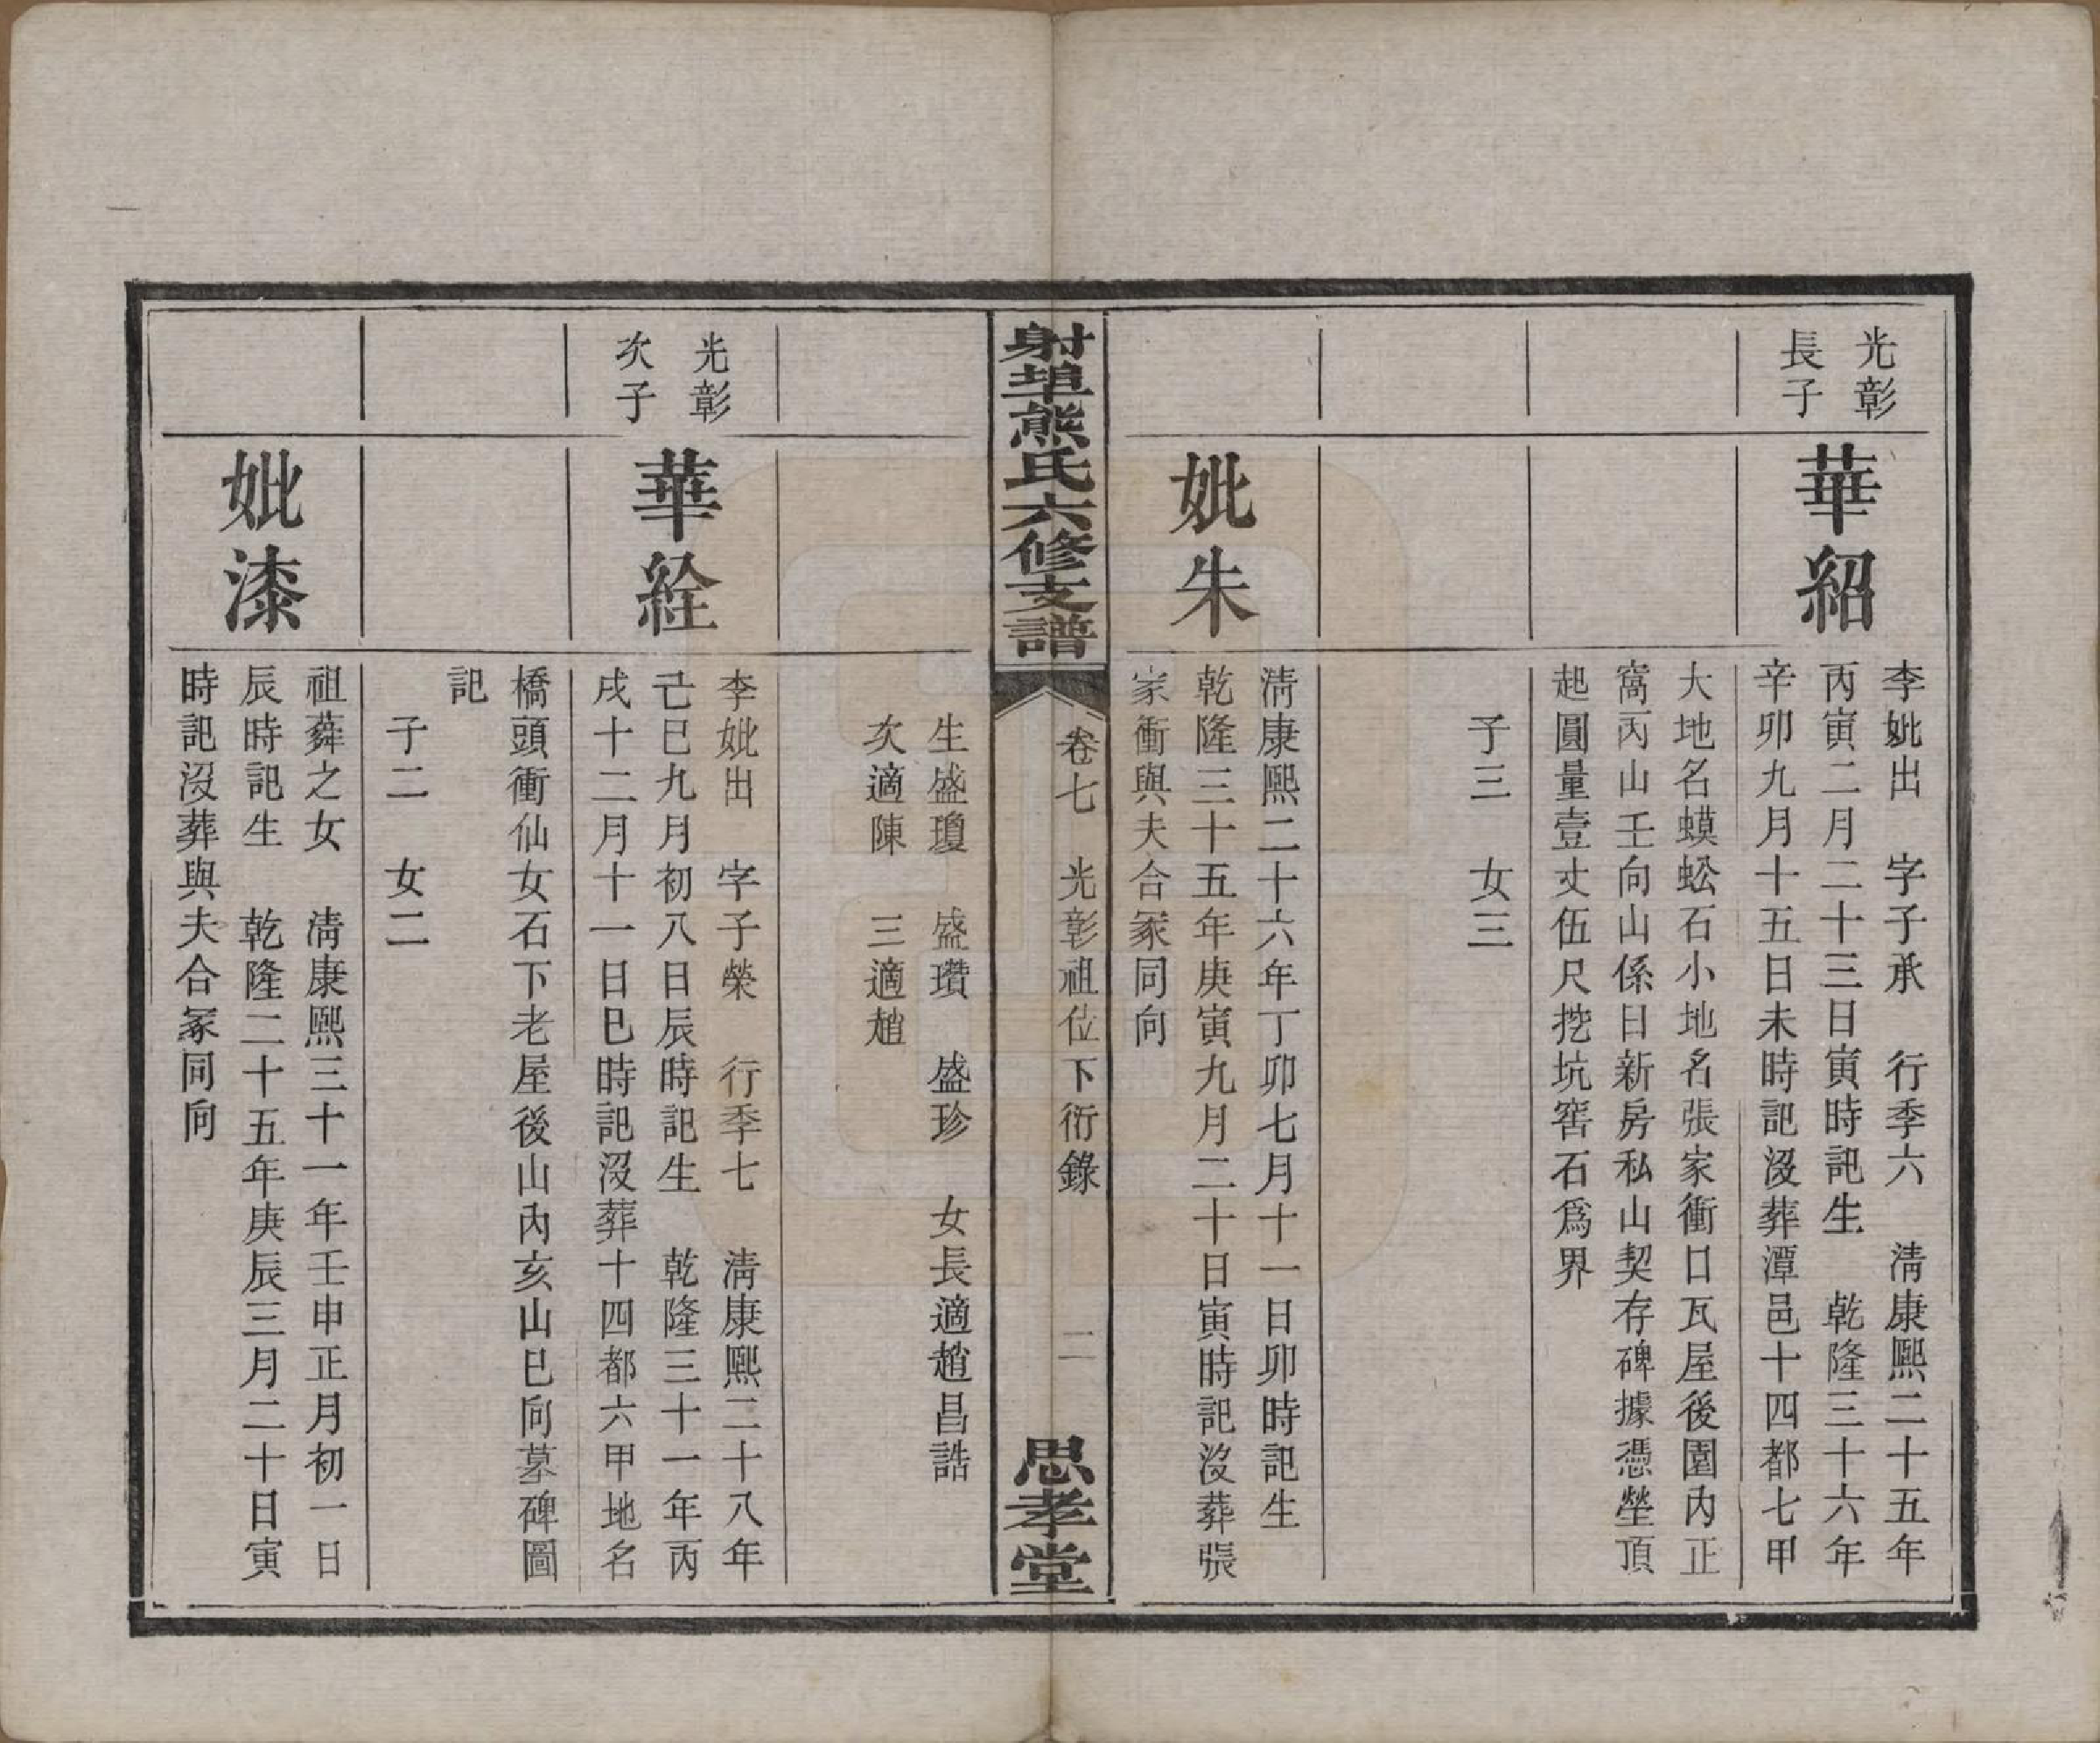 光彰
長子
華紹
李妣出　字子承　行季六　清康熙二十五年
丙寅二月二十三日寅時記生　乾隆三十六年
辛卯九月十五日未時記沒葬潭邑十四都七甲
大地名蟆蚣石小地名張家衝口瓦屋後園內正
窩丙山壬向山係日新房私山契存碑據憑塋頂
起圓量壹丈伍尺挖坑窖石為界
子三　女三
妣朱
清康熙二十六年丁卯七月十一日卯時記生
乾隆三十五年庚寅九月二十日寅時記沒葬張
家衝與夫合冢同向
射埠熊氏六修支譜
卷七　光彰祖位下衍錄　二
思孝堂
生盛瓊　盛瓚　盛珍　女長適趙昌誥
次適陳　三適趙
光彰
次子
華絟
李妣出　字子榮　行季七　清康熙二十八年
己巳九月初八日辰時記生　乾隆三十一年丙
戌十二月十一日巳時記沒葬十四都六甲地名
橋頭衝仙女石下老屋後山內亥山巳向墓碑圖
記
子二　女二
妣漆
祖蕣之女　清康熙三十一年壬申正月初一日
辰時記生　乾隆二十五年庚辰三月二十日寅
時記沒葬與夫合冢同向